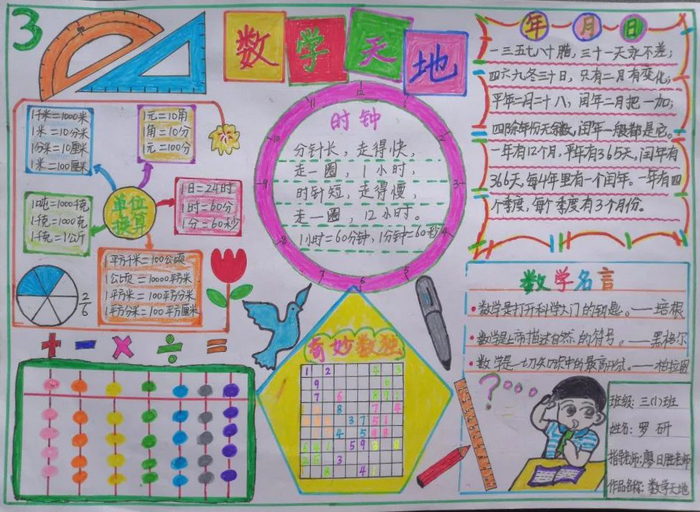 3
数学天地
1千米=1000米
1米=10分米
1分米=10厘米
1米=100厘米
1元=10角
1角=10分
1元=100分
1日=24时
1时=60分
1分=60秒
单位
换算
1吨=1000千克
1千克=1000克
1千克=1公斤
1平方千米=100公顷
1公顷=10000平方米
1平方米=100平方分米
1平方分米=100平方厘米
2/6
+ - × ÷ =
时钟
分针长，走得快，
走一圈，1小时，
时针短，走得慢，
走一圈，12小时。
1小时=60分钟，1分钟=60秒
年月日
一三五七八十腊，三十一天永不差；
四六九冬三十日，只有二月有变化；
平年二月二十八，闰年二月把一加；
四除年份无余数，闰年一般都是它。
一年有12个月，平年有365天，闰年有
366天，每4年里有一个闰年。一年有四
个季度，每个季度有3个月份。
数学名言
数学是打开科学大门的钥匙。——培根
数学是上帝描述自然的符号。——黑格尔
数学是一切知识中的最高形式。——柏拉图
奇妙数独
?
班级：三(1)班
姓名：罗研
指导老师：廖日胜老师
作品名称：数学天地